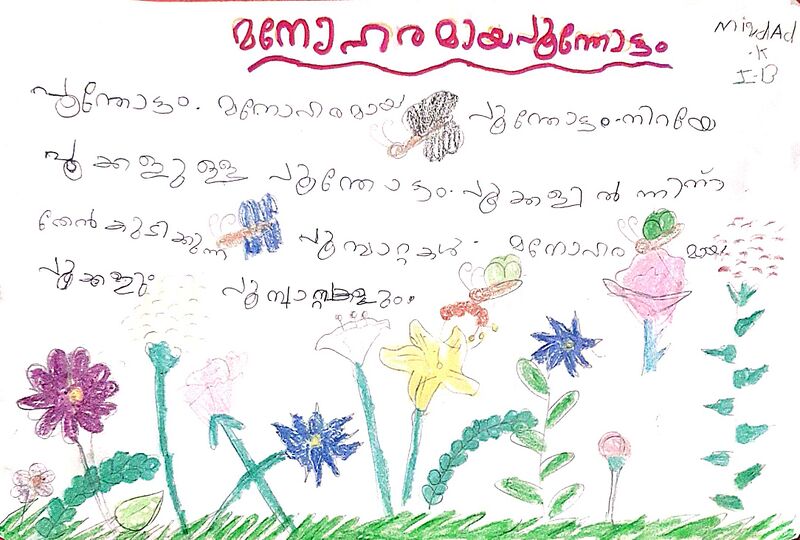 മനോഹരമായപൂന്തോട്ടം
K
I-B
പൂന്തോട്ടം. മനോഹരമായ പൂന്തോട്ടം. നിറയേ
പൂക്കളുള്ള പൂന്തോട്ടം. പൂക്കളിൽ നിന്ന്
തേൻകുടിക്കുന്ന പൂമ്പാറ്റകൾ. മനോഹരമായ
പൂക്കളും പൂമ്പാറ്റകളും.